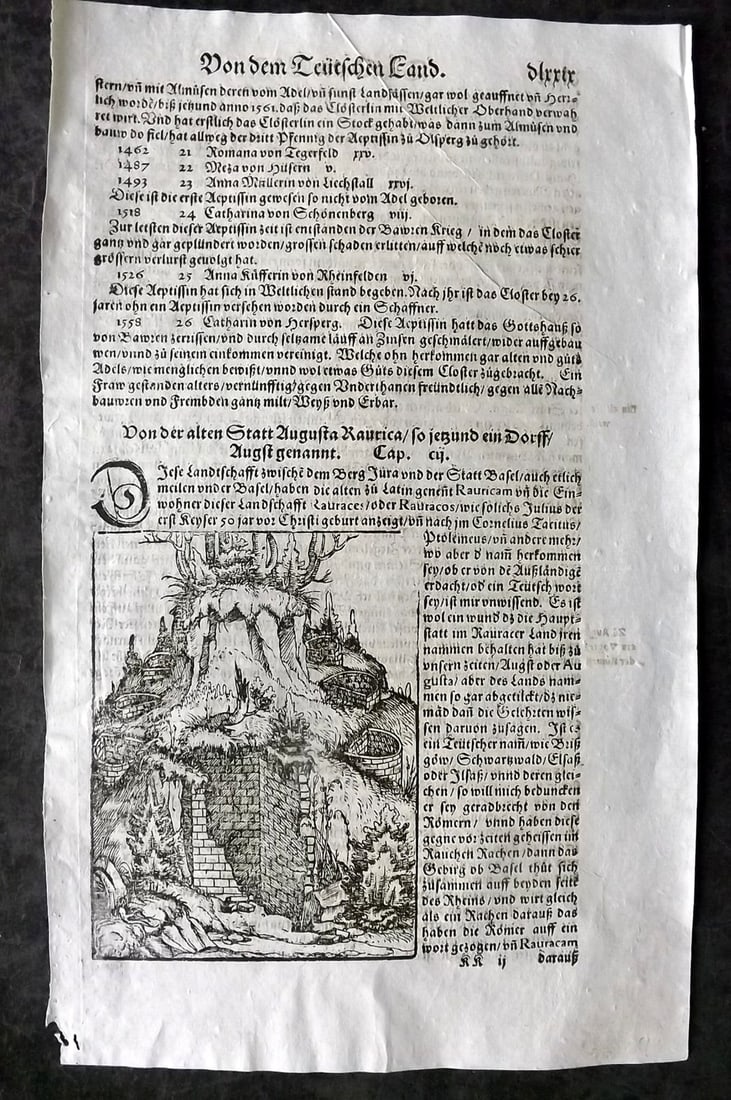 Von dem Teütschen Land. dlxxix
stern/vñ mit Almůsen deren vom Adel/vñ sunst Landsässen/gar wol geauffnet vñ Herr⸗
lich wordē/biß jetzund anno 1561. daß das Clösterlin mit Weltlicher Oberhand verwah
ret wirt. Vnd hat erstlich das Clösterlin ein Stock gehabt/was dann zum Almůsen vnd
bauw do fiel/hat allweg der dritt Pfennig der Aeptissin zů Olsperg zů gehört.
1462 21 Romana von Tegerfeld xxv.
1487 22 Meza von Hüsern v.
1493 23 Anna Müllerin von Liechstall xxvj.
Diese ist die erste Aeptissin gewesen so nicht vom Adel geboren.
1518 24 Catharina von Schönenberg viij.
Zur letsten dieser Aeptissin zeit ist entstanden der Bawren Krieg / in dem das Closter
gantz vnd gar geplündert worden/grossen schaden erlitten/auff welchē noch etwas schier
grössern verlurst geuolgt hat.
1526 25 Anna Küfferin von Rheinfelden vj.
Diese Aeptissin hat sich in Weltlichen stand begeben. Nach jhr ist das Closter bey 26.
jaren ohn ein Aeptissin versehen worden durch ein Schaffner.
1558 26 Catharin von Hersperg. Diese Aeptissin hatt das Gottshauß so
von Bawren zerrissen/vnd durch seltzame läuff an Zinsen geschmälert/wider auffgebau
wen/vnnd zů seinem einkommen vereinigt. Welche ohn herkommen gar alten vnd gůts
Adels/wie menglichen bewißt/vnnd wol etwas Gůts diesem Closter zůgebracht. Ein
Fraw gestanden alters/vernünfftig/gegen Vnderthanen freündtlich/gegen allē Nach⸗
bauwren vnd Frembden gantz milt/Weyß vnd Erbar.
Von der alten Statt Augusta Raurica/so jetzund ein Dorff/
Augst genannt. Cap. cij.
DJese Landtschafft zwischē dem Berg Jura vnd der Statt Basel/auch etlich
meilen vnder Basel/haben die alten zů Latin genent Rauricam vñ die Ein⸗
wohner dieser Landschafft Rauraces/oder Rauracos/wie sölichs Julius der
erst Keyser 50 jar vor Christi geburt anzeigt/vñ nach jm Cornelius Tacitus/
Ptolemeus/vñ andere mehr/
wo aber d nam̄ herkommen
sey/ob er von dē Außländigē
erdacht/od ein Teütsch wort
sey/ist mir vnwissend. Es ist
wol ein wund dz die Haupt⸗
statt im Rauracer Land jren
nammen behalten hat biß zů
vnsern zeiten/Augst oder Au
gusta/ aber des Lands nam⸗
men so gar abgetilckt/dz nie⸗
mād dañ die Gelehrten wis⸗
sen daruon zůsagen. Ist es
ein Teütscher nam̄/wie Briß
göw/ Schwartzwald/Elsaß
oder Ilsaß/ vnnd deren glei⸗
chen/so will mich beduncken
er sey geradbrecht von den
Römern / vnnd haben diese
gegne vor zeiten geheissen im
Rauchen Rachen/dann das
Gebirg ob Basel thůt sich
zůsammen auff beyden seitē
des Rheins/ vnd wirt gleich
als ein Rachen darauß das
haben die Römer auff ein
wort gezogen/vñ Rauracam
KK ij darauß